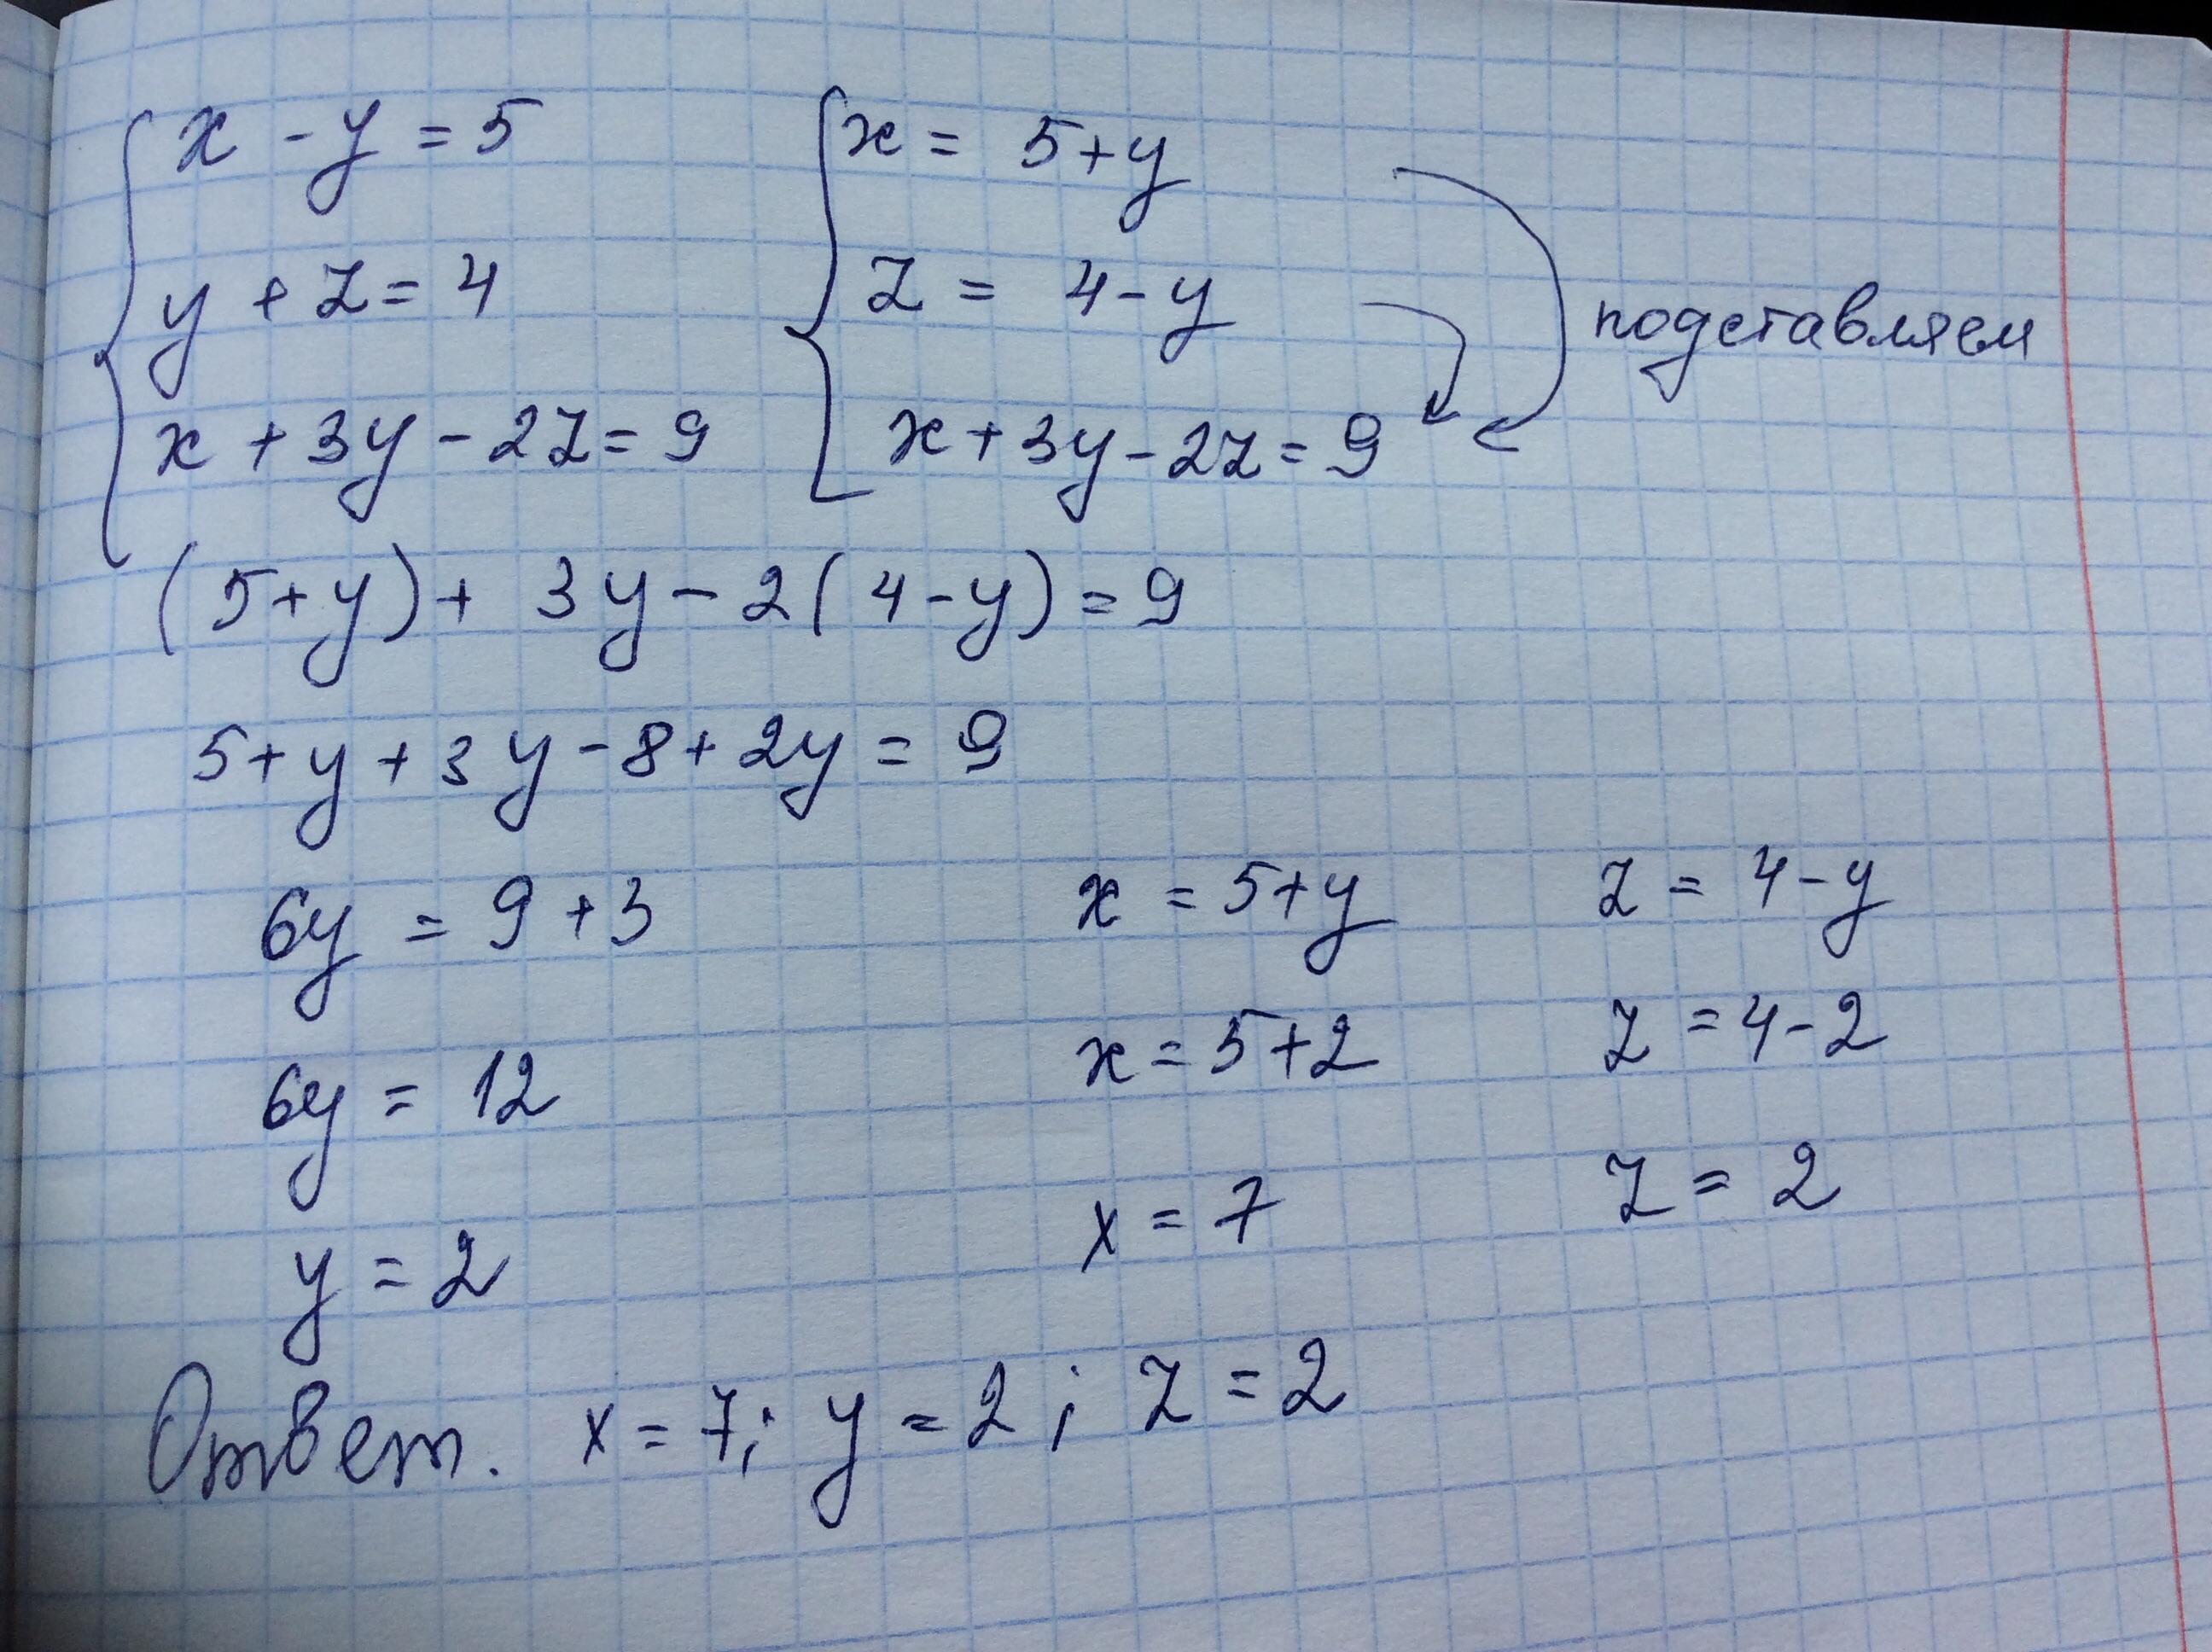 x - y = 5
y + z = 4
x + 3y - 2z = 9
x = 5+y
z = 4-y
x+3y-2z=9
подставляем
(5+y)+ 3y-2(4-y)=9
5+y+3y-8+2y=9
6y = 9+3
6y = 12
y = 2
x = 5+y
x = 5+2
x = 7
z = 4-y
z = 4-2
z = 2
Ответ. x=7; y=2; z=2